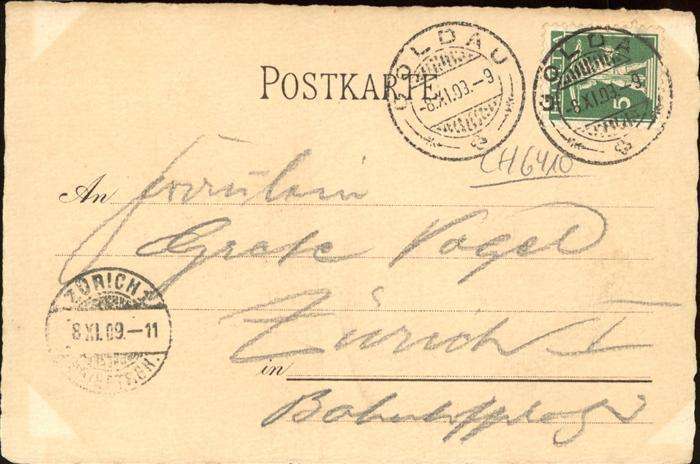 POSTKARTE
GOLDAU
-8.XI.09.-9
GOLDAU
-8.XI.09.-9
5
CH6410
An Fräulein
Grete Vogel
ZÜRICH
8.XI.09.-11
BRIEFTRGR.
Zürich I
in
Bahnhofplatz